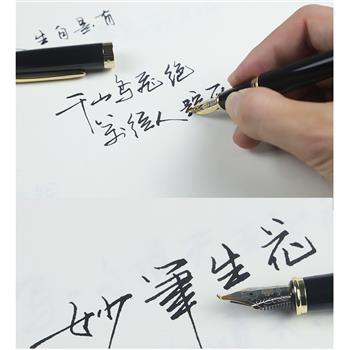 生自是有
千山鸟飞绝
万径人踪灭
妙笔生花